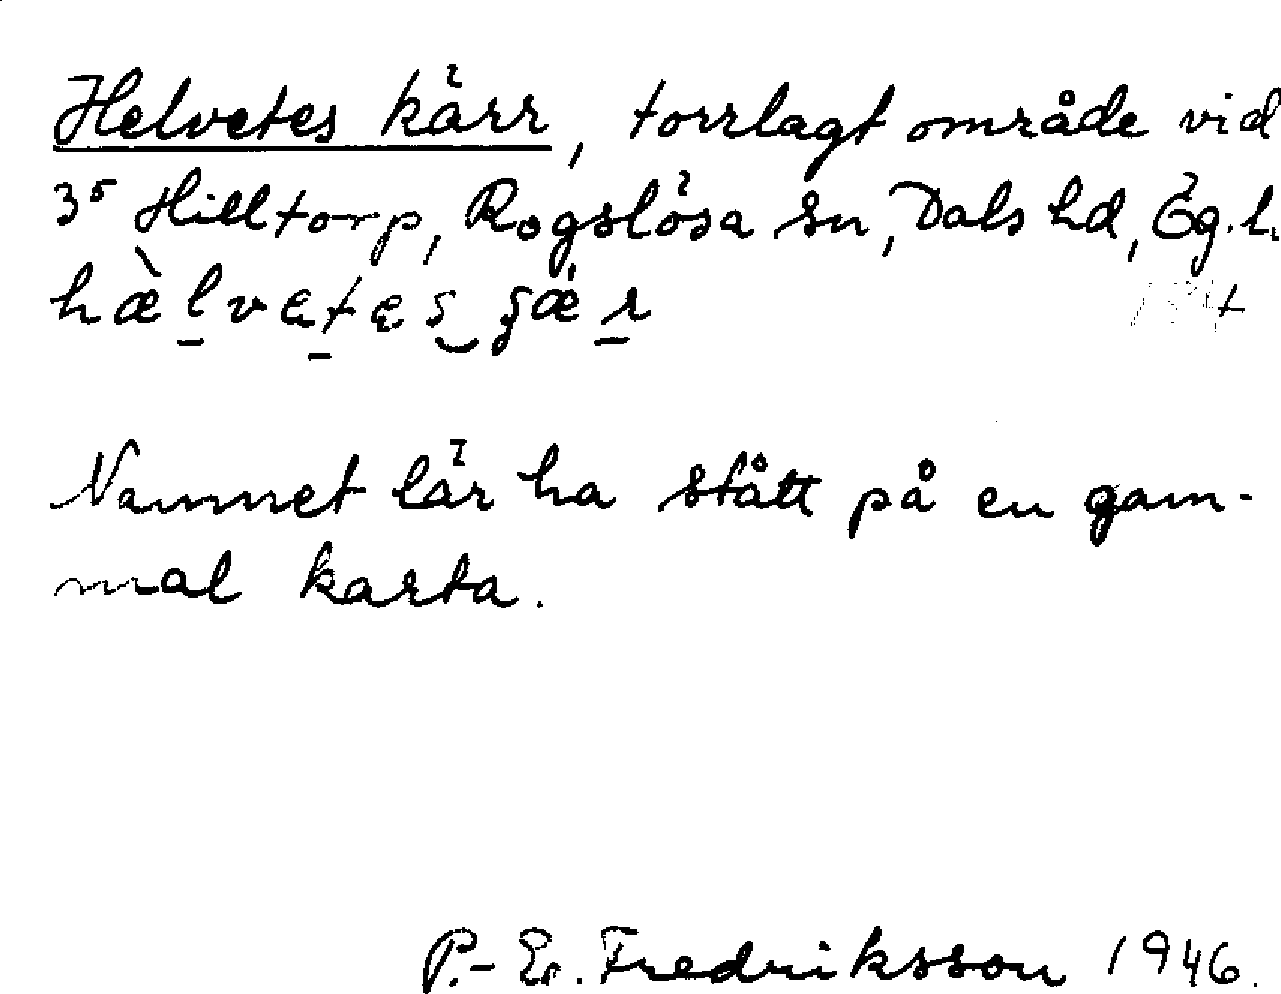 Helvetes kärr, torrlagt område vid
3⁵ Hilltorp, Rogslösa sn, Dals hd, Ög. l.
hæ̀lvetes
Namnet lär ha stått på en gam-
mal karta.
P.-Er. Fredriksson 1946.